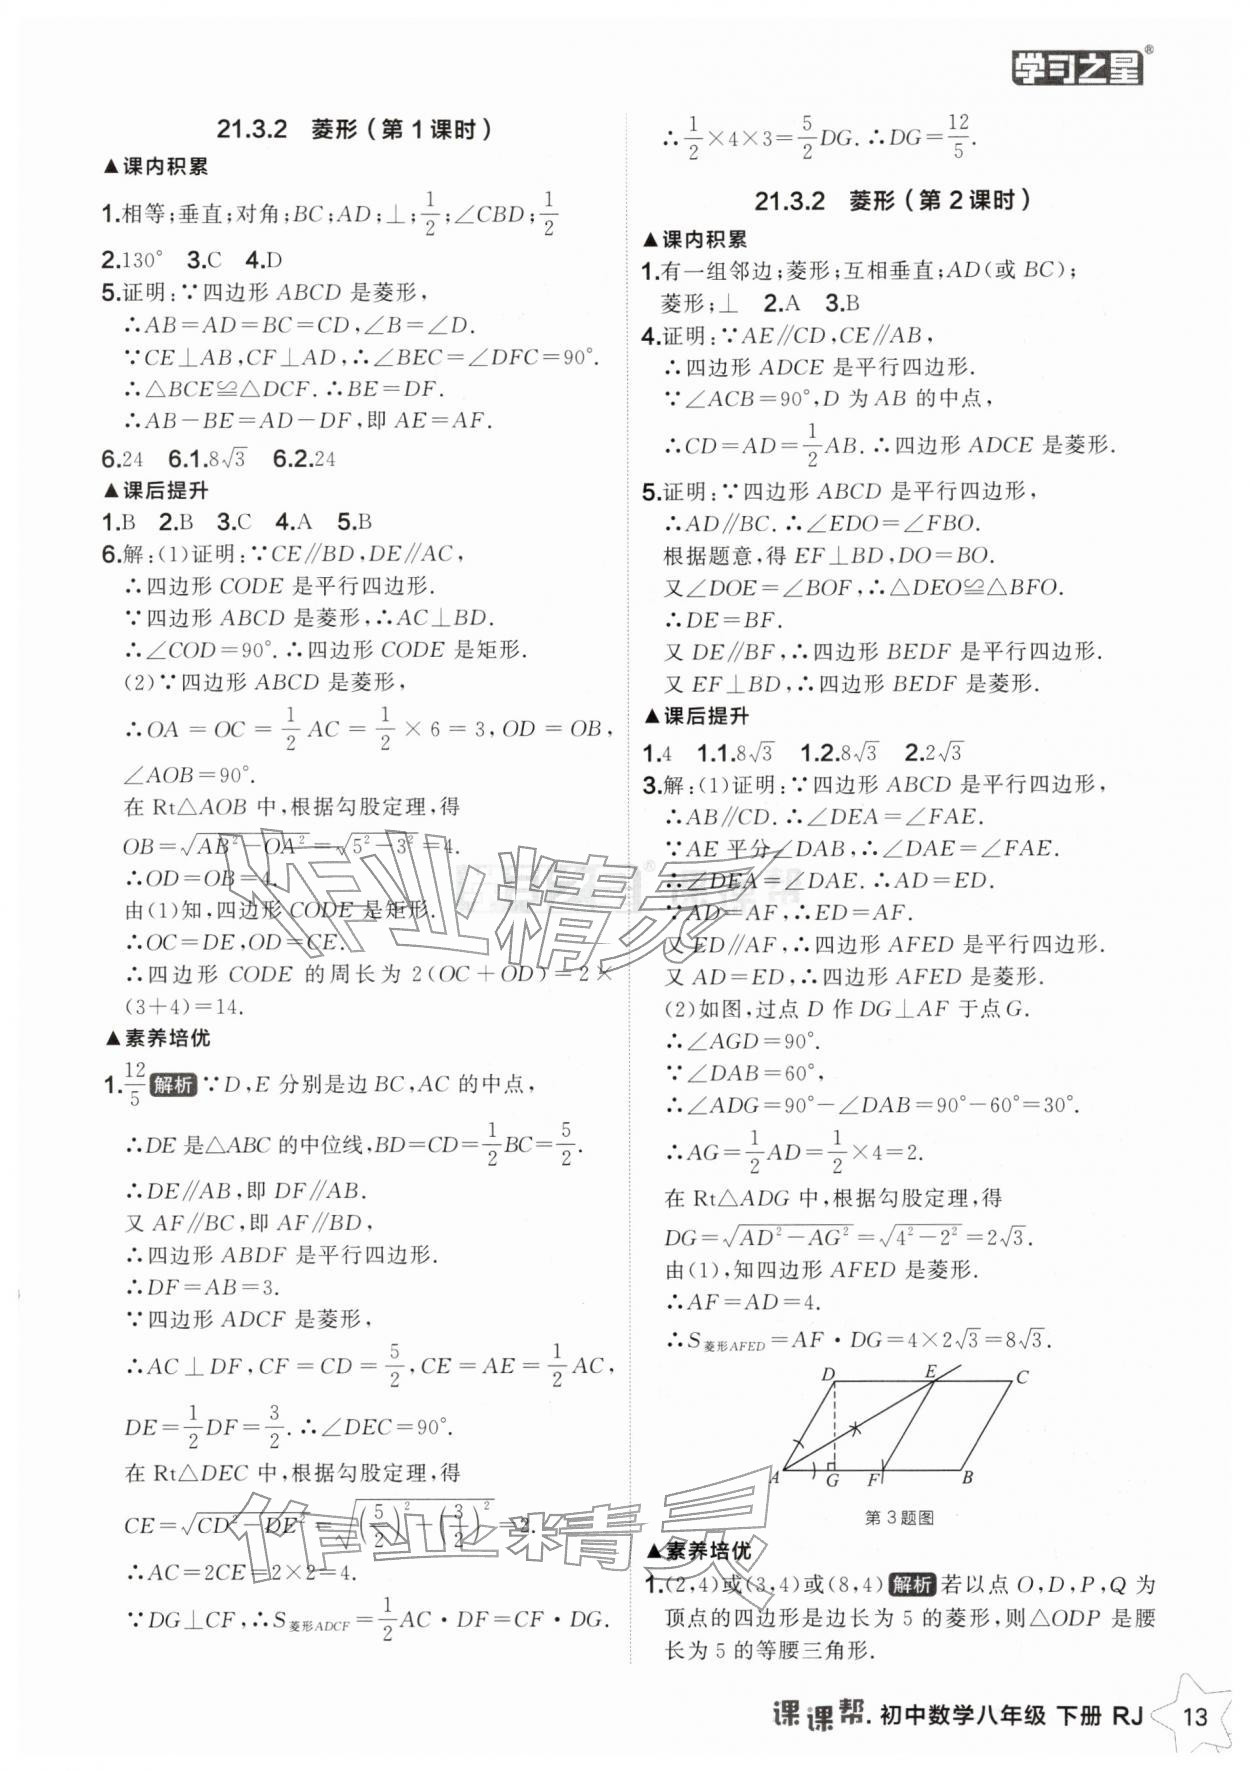 学习之星®
21.3.2 菱形(第1课时)
▲课内积累
1.相等;垂直;对角;BC;AD;⊥;1/2;∠CBD;1/2
2.130° 3.C 4.D
5.证明:∵四边形ABCD是菱形,
∴AB=AD=BC=CD,∠B=∠D.
∵CE⊥AB,CF⊥AD,∴∠BEC=∠DFC=90°.
∴△BCE≌△DCF.∴BE=DF.
∴AB-BE=AD-DF,即AE=AF.
6.24 6.1.8√3 6.2.24
▲课后提升
1.B 2.B 3.C 4.A 5.B
6.解:(1)证明:∵CE∥BD,DE∥AC,
∴四边形CODE是平行四边形.
∵四边形ABCD是菱形,∴AC⊥BD.
∴∠COD=90°.∴四边形CODE是矩形.
(2)∵四边形ABCD是菱形,
∴OA=OC=1/2 AC=1/2×6=3,OD=OB,
∠AOB=90°.
在Rt△AOB中,根据勾股定理,得
OB=√(AB²-OA²)=√(5²-3²)=4.
∴OD=OB=4.
由(1)知,四边形CODE是矩形.
∴OC=DE,OD=CE.
∴四边形CODE的周长为2(OC+OD)=2×
(3+4)=14.
▲素养培优
1.12/5 解析 ∵D,E分别是边BC,AC的中点,
∴DE是△ABC的中位线,BD=CD=1/2 BC=5/2.
∴DE∥AB,即DF∥AB.
又AF∥BC,即AF∥BD,
∴四边形ABDF是平行四边形.
∴DF=AB=3.
∵四边形ADCF是菱形,
∴AC⊥DF,CF=CD=5/2,CE=AE=1/2 AC,
DE=1/2 DF=3/2.∴∠DEC=90°.
在Rt△DEC中,根据勾股定理,得
CE=√(CD²-DE²)=√((5/2)²-(3/2)²)=2.
∴AC=2CE=2×2=4.
∵DG⊥CF,∴S菱形ADCF=1/2 AC·DF=CF·DG.
∴1/2×4×3=5/2 DG.∴DG=12/5.
21.3.2 菱形(第2课时)
▲课内积累
1.有一组邻边;菱形;互相垂直;AD(或BC);
菱形;⊥ 2.A 3.B
4.证明:∵AE∥CD,CE∥AB,
∴四边形ADCE是平行四边形.
∵∠ACB=90°,D为AB的中点,
∴CD=AD=1/2 AB.∴四边形ADCE是菱形.
5.证明:∵四边形ABCD是平行四边形,
∴AD∥BC.∴∠EDO=∠FBO.
根据题意,得EF⊥BD,DO=BO.
又∠DOE=∠BOF,∴△DEO≌△BFO.
∴DE=BF.
又DE∥BF,∴四边形BEDF是平行四边形.
又EF⊥BD,∴四边形BEDF是菱形.
▲课后提升
1.4 1.1.8√3 1.2.8√3 2.2√3
3.解:(1)证明:∵四边形ABCD是平行四边形,
∴AB∥CD.∴∠DEA=∠FAE.
∵AE平分∠DAB,∴∠DAE=∠FAE.
∴∠DEA=∠DAE.∴AD=ED.
∵AD=AF,∴ED=AF.
又ED∥AF,∴四边形AFED是平行四边形.
又AD=ED,∴四边形AFED是菱形.
(2)如图,过点D作DG⊥AF于点G.
∴∠AGD=90°.
∵∠DAB=60°,
∴∠ADG=90°-∠DAB=90°-60°=30°.
∴AG=1/2 AD=1/2×4=2.
在Rt△ADG中,根据勾股定理,得
DG=√(AD²-AG²)=√(4²-2²)=2√3.
由(1),知四边形AFED是菱形.
∴AF=AD=4.
∴S菱形AFED=AF·DG=4×2√3=8√3.
D E C
A G F B
第3题图
▲素养培优
1.(2,4)或(3,4)或(8,4) 解析 若以点O,D,P,Q为
顶点的四边形是边长为5的菱形,则△ODP是腰
长为5的等腰三角形.
课课帮.初中数学八年级 下册 RJ 13
作业精灵
作业精灵